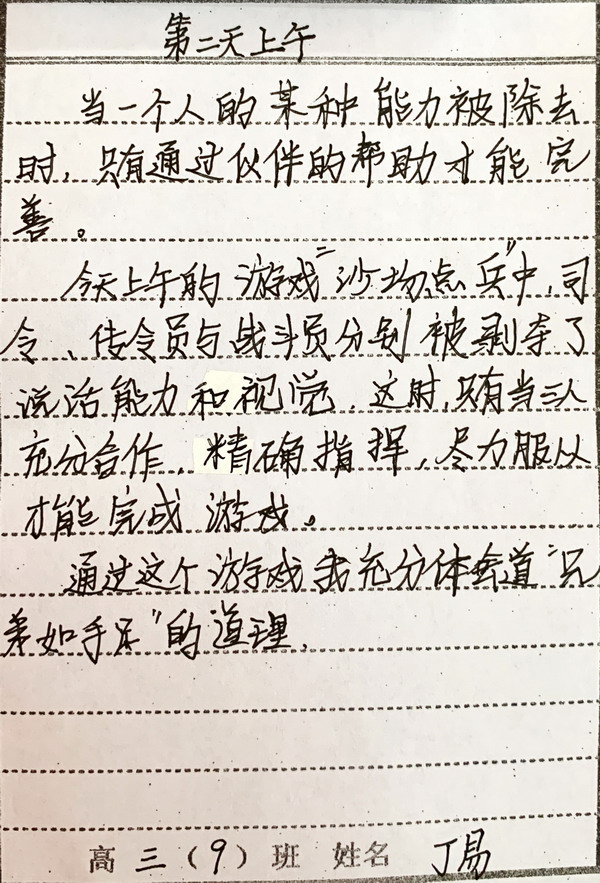 第二天上午
当一个人的某种能力被除去
时,只有通过伙伴的帮助才能完
善。
今天上午的游戏“沙场点兵”中,司
令、传令员与战斗员分别被剥夺了
说话能力和视觉,这时,只有当三人
充分合作,精确指挥,尽力服从
才能完成游戏。
通过这个游戏我充分体会道“兄
弟如手足”的道理.
高三(9)班 姓名 丁易